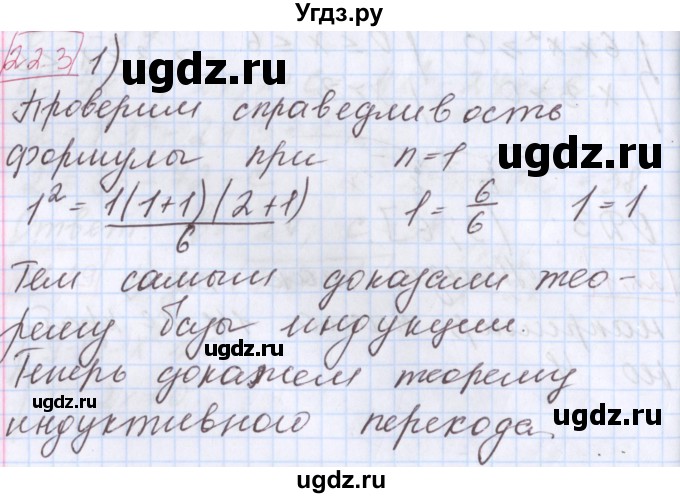 Угдз.ру
223 1)
ugdz.ru
Проверим справедливость
формулы при n=1
ugdz.ru
1² = 1(1+1)(2+1)/6 1 = 6/6 1=1
ugdz.ru
Тем самым доказали тео-
рему базы индукции.
ugdz.ru
Теперь докажем теорему
ugdz.ru
индуктивного перехода
ugdz.ru ugdz.ru